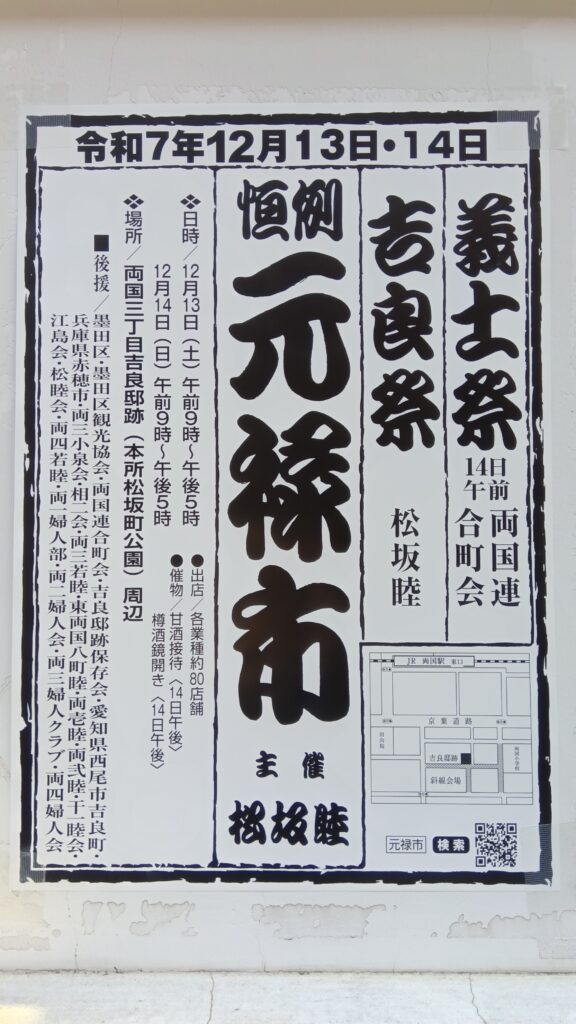 令和7年12月13日・14日
義士祭
14日午前
両国連合町会
吉良祭
松坂睦
恒例
元禄市
主催
松坂睦
❖日時／12月13日（土）午前9時〜午後5時
12月14日（日）午前9時〜午後5時
●出店／各業種約80店舗
●催物／甘酒接待〈14日午後〉
樽酒鏡開き〈14日午後〉
❖場所／両国三丁目吉良邸跡（本所松坂町公園）周辺
■後援／墨田区・墨田区観光協会・両国連合町会・吉良邸跡保存会・愛知県西尾市吉良町・
兵庫県赤穂市・両三小泉会・相二会・両三若睦・東両国八町睦・両壱睦・両弐睦・十一睦会・
江島会・松睦会・両四若睦・両一婦人部・両二婦人会・両三婦人クラブ・両四婦人会
JR 両国駅 東口
京葉道路
回向院
吉良邸跡
斜線会場
両国小学校
元禄市 検索